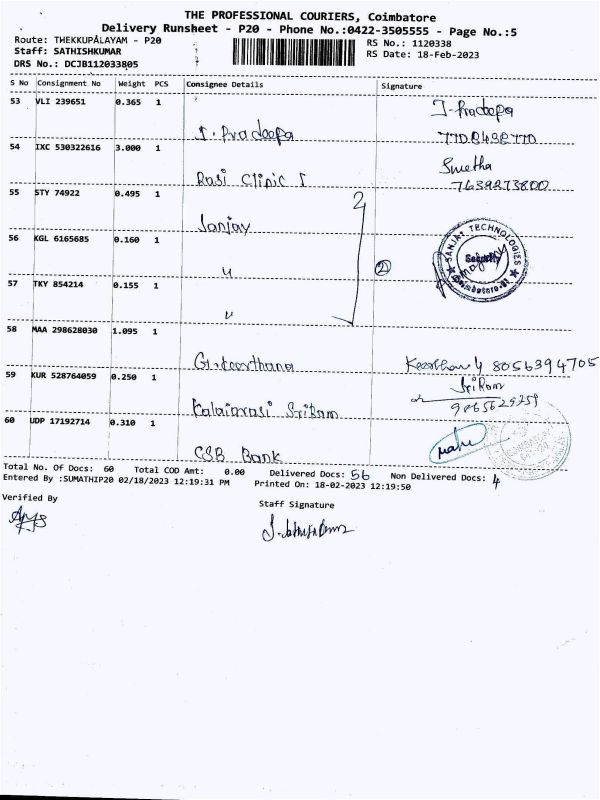 THE PROFESSIONAL COURIERS, Coimbatore
Delivery Runsheet - P20 - Phone No.:0422-3505555 - Page No.:5
Route: THEKKUPALAYAM - P20
RS No.: 1120338
Staff: SATHISHKUMAR
RS Date: 18-Feb-2023
DRS No.: DCJB112033805
S No Consignment No Weight PCS Consignee Details Signature
53 VLI 239651 0.365 1
J. Pradeepa
J. Pradeepa
7708498770
54 IXC 530322616 3.000 1
Rasi Clinic
Swetha
7639273800
55 STY 74922 0.495 1
Sanjay
2
56 KGL 6165685 0.160 1
"
2
SANJAY TECHNOLOGIES
Security
Coimbatore
57 TKY 854214 0.155 1
"
58 MAA 298628030 1.095 1
8056394705
59 KUR 528764059 0.250 1
Kalaiarasi Sriram
SriRam
9865629259
60 UDP 17192714 0.310 1
CSB Bank
Total No. Of Docs: 60 Total COD Amt: 0.00 Delivered Docs: 56 Non Delivered Docs: 4
Entered By :SUMATHIP20 02/18/2023 12:19:31 PM Printed On: 18-02-2023 12:19:50
Verified By
Staff Signature